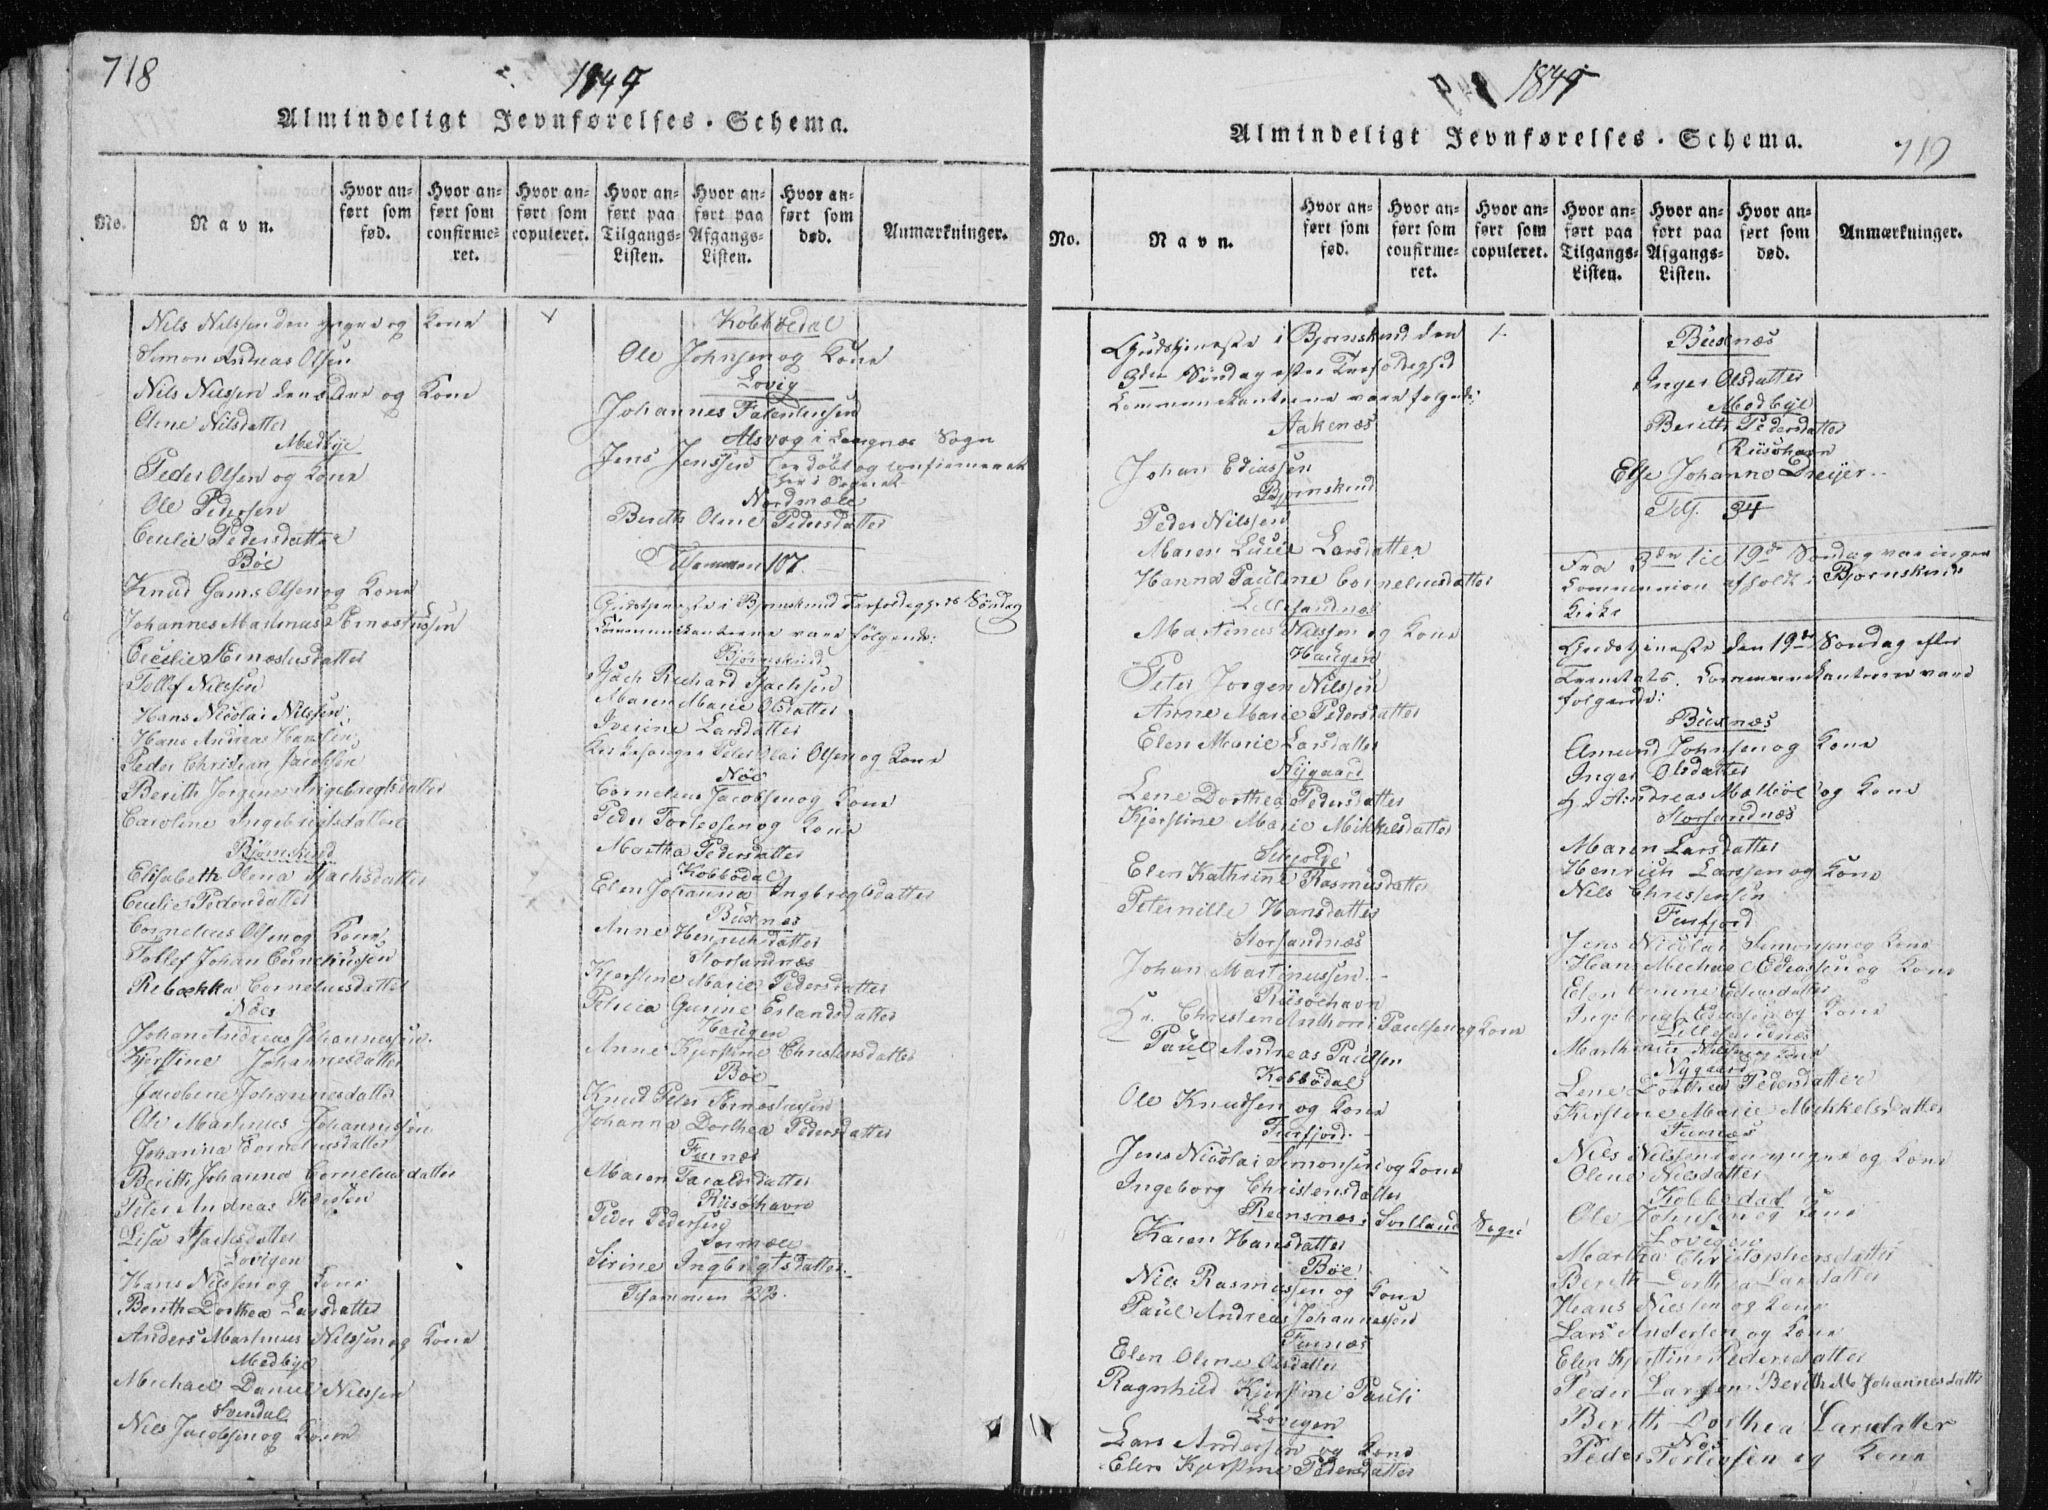 718
1847
Almindeligt Jevnførelses-Schema.
No.
Navn.
Hvor anført som fød.
Hvor anført som confirmeret.
Hvor anført som copuleret.
Hvor anført paa Tilgangs-Listen.
Hvor anført paa Afgangs-Listen.
Hvor anført som død.
Anmærkninger.
Nils Nilssen den yngre og Kone
Simon Andreas Olsen
Nils Nilssen den eldre og Kone
Olene Nilsdatter
Medbye
Peder Olsen og Kone
Ole Pedersen
Cecilie Pedersdatter
Böe
Knud Gams Olsen og Kone
Johannes Martinus Ernestussen
Cecilie Ernestusdatter
Tollef Nilssen
Hans Nicolai Nilssen
Hans Andreas Hanssen
Peder Christian Jacobsen
Berith Jorgine Ingebregtsdatter
Caroline Ingebrigtsdatter
Bjørnskind
Elisabeth Olena Isachsdatter
Cecilie Pedersdatter
Cornelius Olsen og Kone
Tollef Johan Corneliussen
Rebækka Corneliusdatter
Nöes
Johan Andreas Johannessen
Kjerstine Johannesdatter
Jacobine Johannesdatter
Ole Martinus Johannessen
Johanna Corneliusdatter
Berith Johanna Corneliusdatter
Peter Andreas Pedersen
Lisa Isachsdatter
Lovigen
Hans Nilssen og Kone
Berith Dorthea Larsdatter
Anders Martinus Nilssen og Kone
Medbye
Michael Daniel Nilssen
Svendal
Nils Jacobsen og Kone
Kobbödal
Ole Johnsen og Kone
Lovig
Johannes Falentinsen
Alsvog i Langnæs Sogn
Jens Jenssen er döbt og confirmeret her i Sognet
Nordmæle
Berith Olene Pedersdatter
Tilsammen 107.
Gudstjeneste i Bjørnskind Søndag
Communicanterne vare følgende:
Bjørnskind
Isach Richard Isachsen
Maren Marie Olsdatter
Iverine Larsdatter
Kirkesanger Peter Olai Olsen og Kone
Nöe
Cornelius Jacobsen og Kone
Peder Torlevsen og Kone
Martha Pedersdatter
Kobbödal
Elen Johanna Ingbregtsdatter
Buxnæs
Anne Henrichsdatter
Storsandnæs
Kjerstine Marie Pedersdatter
Petricia Gurine Erlandsdatter
Haugen
Anne Kjerstine Christensdatter
Böe
Knud Peter Ernestussen
Johanna Dorthea Pedersdatter
Furnæs
Maren Taraldsdatter
Risöehavn
Peder Pedersen
Sirine Ingbrigtsdatter
Tilsammen 23.
1847
Almindeligt Jevnførelses-Schema.
719
No.
Navn.
Hvor anført som fød.
Hvor anført som confirmeret.
Hvor anført som copuleret.
Hvor anført paa Tilgangs-Listen.
Hvor anført paa Afgangs-Listen.
Hvor anført som død.
Anmærkninger.
Gudstjeneste i Bjørnskind den
3die Søndag efter
Communicanterne vare følgende:
Aakenæs
Johan Ediassen
Bjørnskind
Peder Nilssen
Maren Lucie Larsdatter
Hanna Pauline Corneliusdatter
Lillesandnæs
Martinus Nilssen og Kone
Haugen
Peter Jorgen Nilssen
Anne Marie Pedersdatter
Elen Marie Larsdatter
Nygaard
Lene Dorthea Pedersdatter
Kjerstine Marie Mikkelsdatter
Skjolde
Elen Kathrine Rasmusdatter
Peternille Hansdatter
Storsandnæs
Johan Martinussen
Risöehavn
Hr. Christen Anthoni Paulsen og Kone
Paul Andreas Paulsen
Kobbödal
Ole Knudsen og Kone
Finfjord
Jens Nicolai Simonsen og Kone
Ingeborg Christensdatter
Reensnæs i Sortland Sogn
Karen Hansdatter
Böe
Nils Rasmussen og Kone
Paul Andreas Johannessen
Furnæs
Elen Olene Olsdatter
Ragnhild Kjerstine Pauli
Lovigen
Lars Andersen og Kone
Elen Kjerstine Pedersdatter
Buxnæs
Inger Olsdatter
Medbye
Berith Pedersdatter
Risöehavn
Else Johanna Dreyer
34
Fra 3die til 19de Søndag var ingen
Communion afholdt i Bjørnskind
Kirke
Gudstjeneste den 19de Søndag efter
Trinitatis. Communicanterne vare
følgende:
Buxnæs
Amund Johnsen og Kone
Inger Olsdatter
Hr. Andreas Mælböe og Kone
Storsandnæs
Maren Larsdatter
Henrich Larssen og Kone
Nils Christensen
Finfjord
Jens Nicolai Simonsen og Kone
Hans Michael Ediassen og Kone
Elen Ediasdatter
Ingebrigt Ediassen og Kone
Lillesandnæs
Marthinus Nilssen og Kone
Nygaard
Lene Dorthea Pedersdatter
Kirstine Marie Mikkelsdatter
Furnæs
Nils Nilssen den yngre og Kone
Olene Nilsdatter
Kobbedal
Ole Johnsen og Kone
Lovigen
Martha Christophersdatter
Berith Dorthea Larsdatter
Hans Nilssen og Kone
Lars Andersen og Kone
Elen Kjerstine Pedersdatter
Peder Larsen Berith M. Johannesdatter
Berith Dorthea Larsdatter
Nöe
Peder Torlevsen og Kone